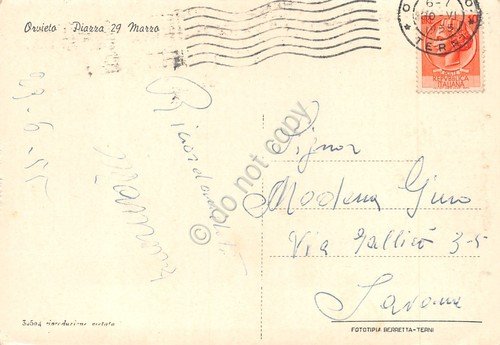 Orvieto - Piazza 29 Marzo
6-7
TERNI
REPVBBLICA
ITALIANA
23-6-55
Ricordandoti
Signor
Modena Gino
Via Gallicò 3-5
Savona
© do not copy
34504 riproduzione vietata
FOTOTIPIA BERRETTA-TERNI